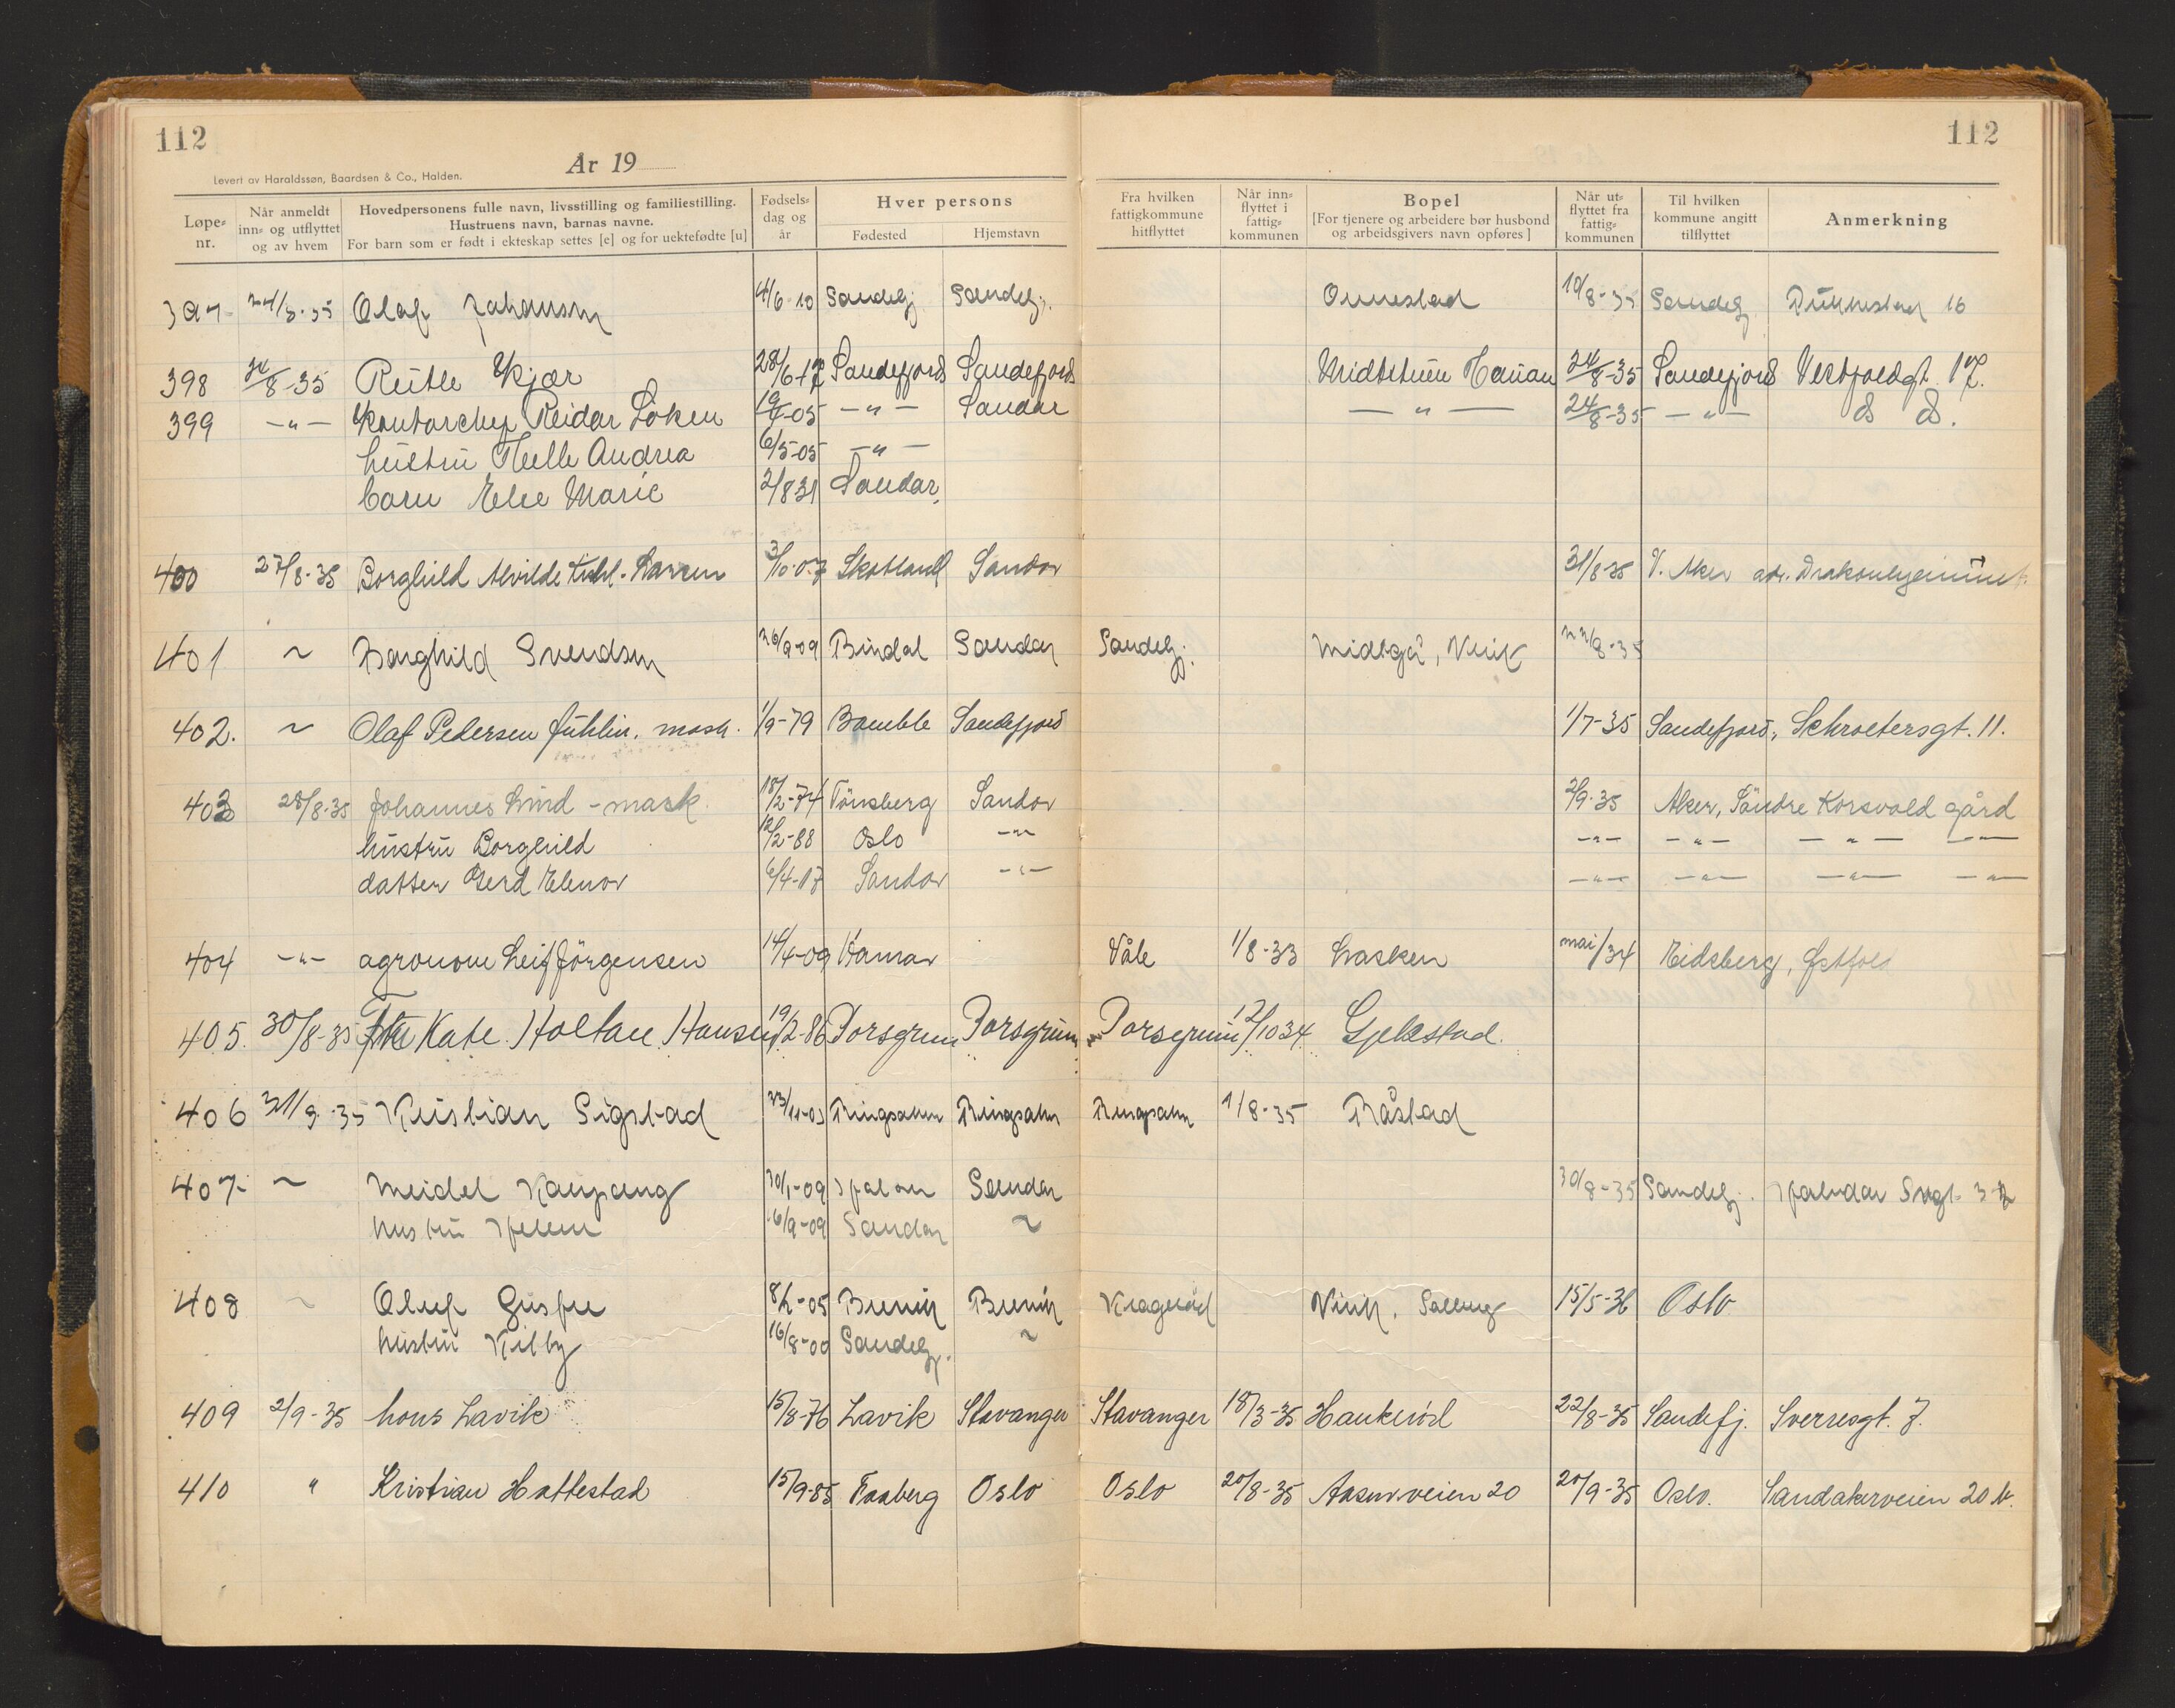 112
112
År 19
Levert av Haraldssøn, Baardsen & Co., Halden.
Løpe-nr. | Når anmeldt inn- og utflyttet og av hvem | Hovedpersonens fulle navn, livsstilling og familiestilling. Hustruens navn, barnas navne. For barn som er født i ekteskap settes [e] og for uektefødte [u] | Fødsels-dag og år | Hver persons Fødested | Hjemstavn | Fra hvilken fattigkommune hitflyttet | Når inn-flyttet i fattig-kommunen | Bopel [For tjenere og arbeidere bør husbond og arbeidsgivers navn opføres] | Når ut-flyttet fra fattig-kommunen | Til hvilken kommune angitt tilflyttet | Anmerkning
397 24/8-35 Olaf Johansen 4/6-10 Sandefj Sandefj. 10/8-35 Sandefj 16
398 24/8-35 Ruth Skjær 28/6-17 Sandefjord Sandefjord Midtstuen Hauan 24/8-35 Sandefjord Vestfoldgt. 17.
399 -"- Kontorchef Reidar Löken -"- Sandar -"- 24/8-35 -"- do do.
hustru Helle Andrea 6/5-05 -"-
barn Else Marie 2/8 31 Sandar.
400 27/8-35 Borghild Alvilde Kihl-Larsen 3/10-07 Skotland Sandar 31/8-35 V. Aker adr.
401 ~ Borghild Svendsen 26/9-09 Bindal Sandar Sandefj. Midtgå, Virik 22/8-35
402. ~ Olaf Pedersen Juhlin. mask. 1/9-79 Bamble Sandefjord 1/7-35 Sandefjord, Schroetersgt. 11.
403 28/8-35 Johannes Lind - mask. 18/2-74 Tönsberg Sandar 2/9-35 Aker, Söndre Korsvold gård
hustru Borghild 12/2-88 Oslo -"- -"- -"- -"- -"-
datter Gerd Elenor 6/4-17 Sandar -"- -"- -"- -"- -"-
404 -"- agronom Leif Jörgensen 14/4-09 Hamar Våle 1/8-33 Lasken mai/34 Eidsberg, Østfold
405. 30/8-35 Kate Holtan Hansen 19/2-86 Porsgrun Porsgrunn Porsgrunn 12/10 34 Gjekstad.
406 31/8-35 Kristian Sigstad 23/11-03 Ringsaker Ringsaker Ringsaker 1/8-35 Råstad
407 ~ Meidel Kaupang 30/1-09 Sandar 30/8-35 Sandefj.
hustru Helene 6/9-09 Sandar ~
408 ~ Oluf Gusfre 8/2-05 Brevik Brevik Kragerö Virik, Solberg 15/5-36 Oslo
hustru Kitty 16/8-00 Sandefj. ~
409 2/9-35 Lons Lavik 15/8-76 Lavik Stavanger Stavanger 18/3-35 Haukeröd 22/8-35 Sandefj. Sverresgt. 7.
410 " Kristian Hattestad 15/9-85 Faaberg Oslo Oslo 20/8-35 Aasenveien 20 20/9-35 Oslo. Sandakerveien 20 N.